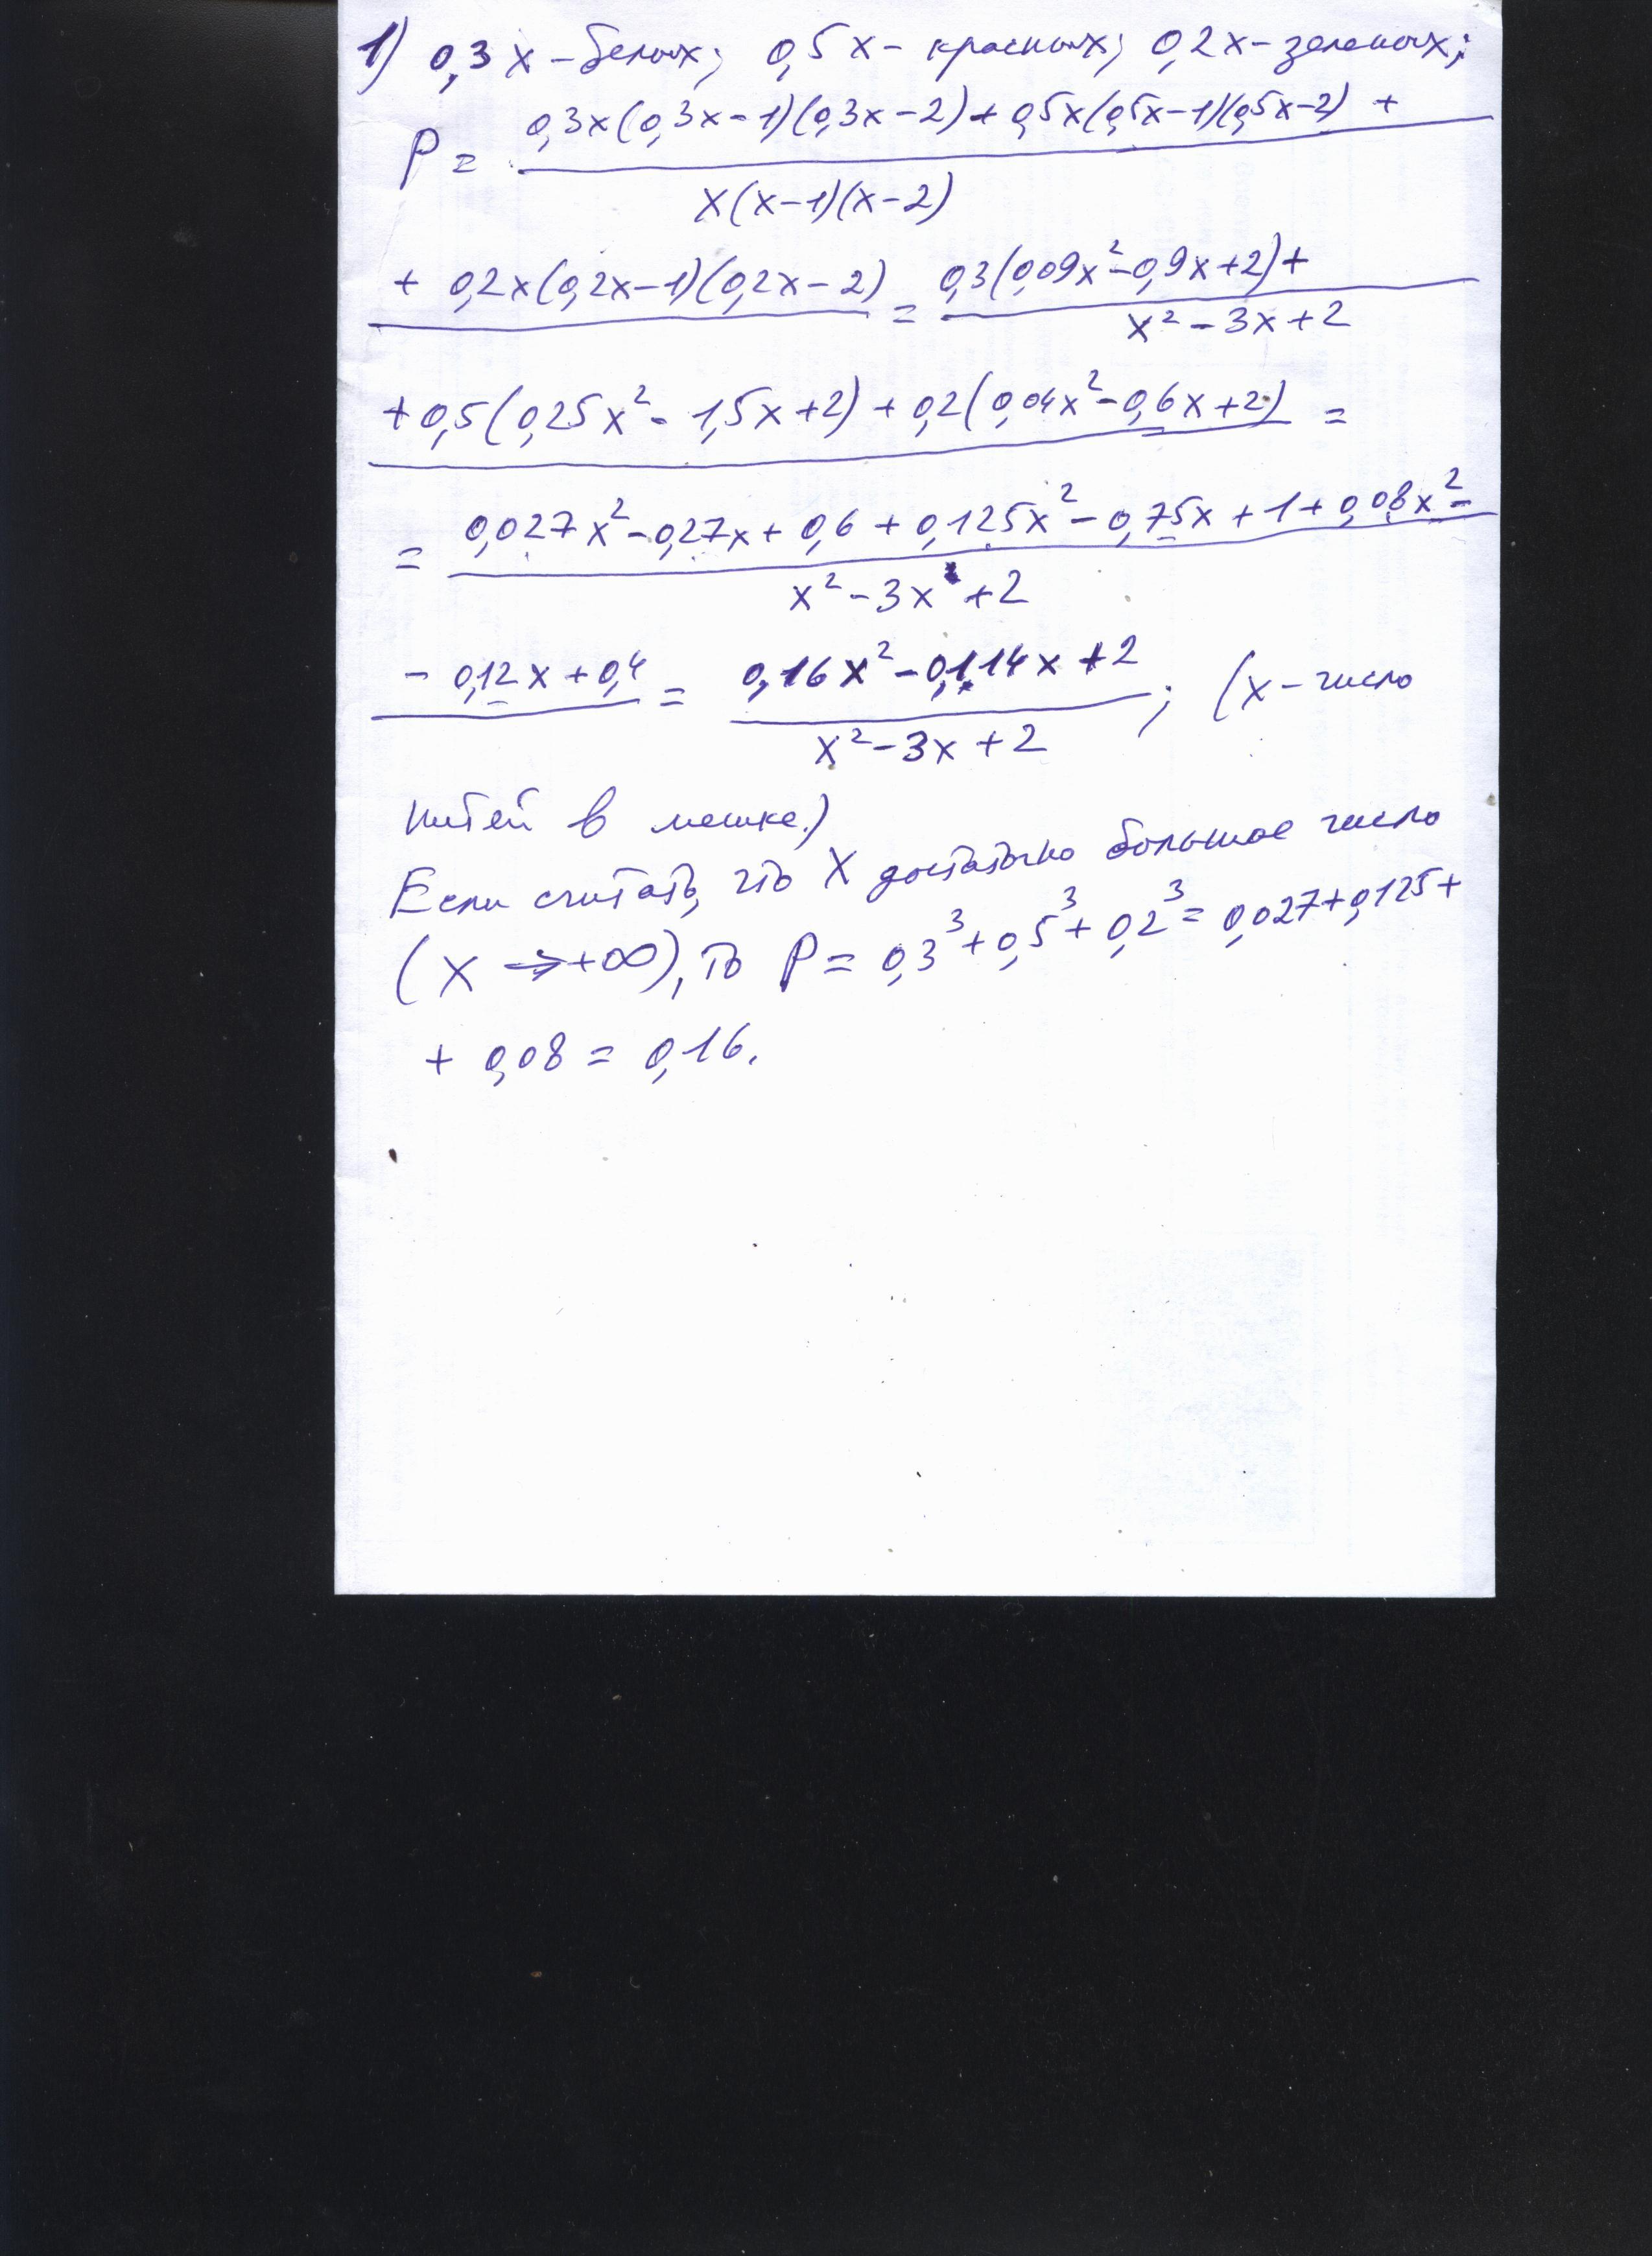 1) 0,3x – белых; 0,5x – красных; 0,2x – зеленых;
0,3x(0,3x-1)(0,3x-2)+0,5x(0,5x-1)(0,5x-2) +
P =
x(x-1)(x-2)
+ 0,2x(0,2x-1)(0,2x-2) = 0,3(0,09x²-0,9x+2)+
x²-3x+2
+0,5(0,25x²-1,5x+2)+0,2(0,04x²-0,6x+2) =
= 0,027x²-0,27x+0,6+0,125x²-0,75x+1+0,08x²-
x²-3x+2
- 0,12x+0,4 = 0,16x²-0,1.14x+2 ; (x – число
x²-3x+2
нитей в мешке.)
Если считать, что X достаточно большое число
(X → +∞), то P = 0,3³+0,5³+0,2³ = 0,027+0,125+
+ 0,08 = 0,16.